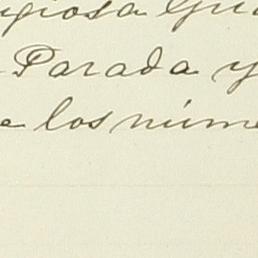 giosa Gu
Parada y
e los núme